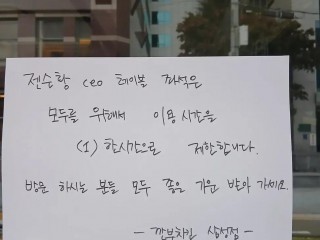 젠슨황 CEO 테이블 좌석은
모두를 위해서 이용시간을
(1) 한시간으로 제한합니다.
방문 하시는 분들 모두 좋은 기운 받아 가세요.
- 깐부치킨 삼성점 -